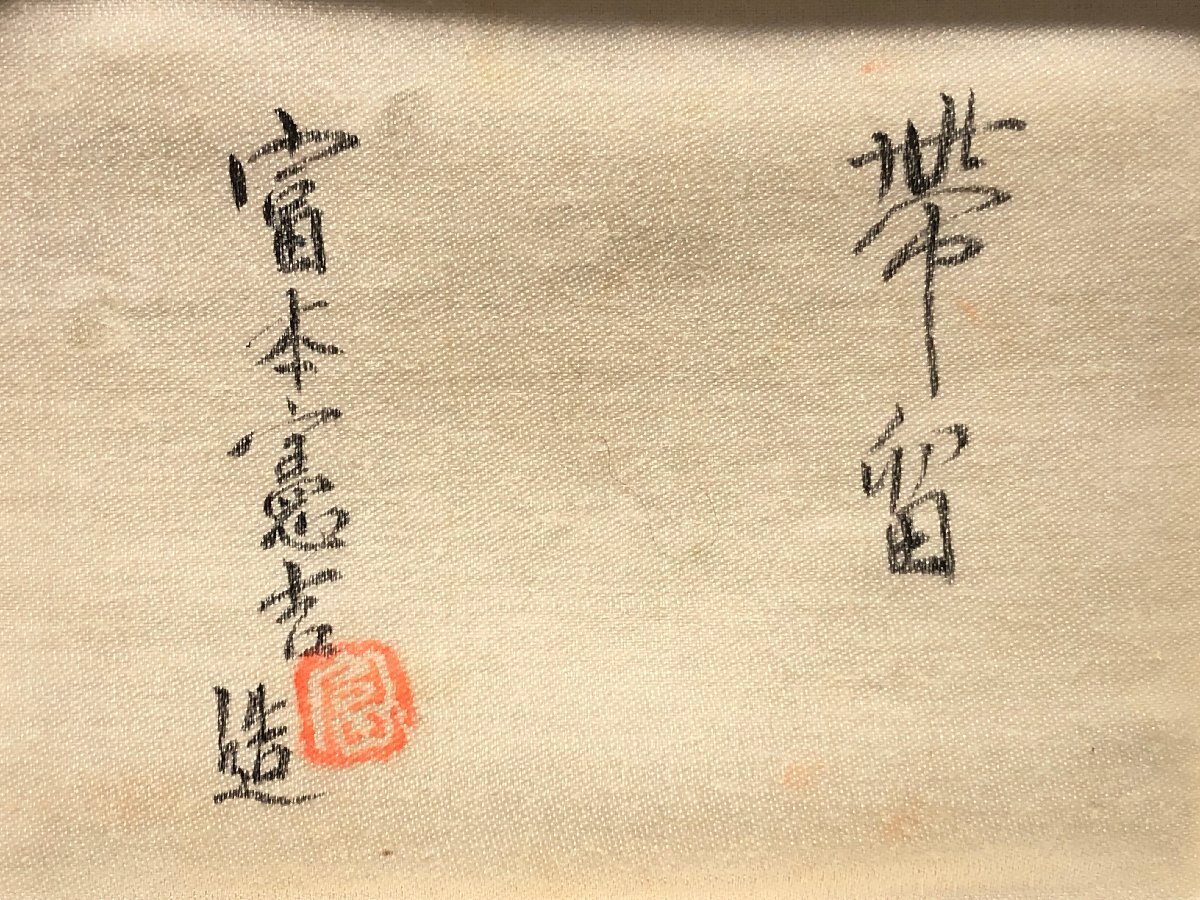 帶留
富本憲吉造